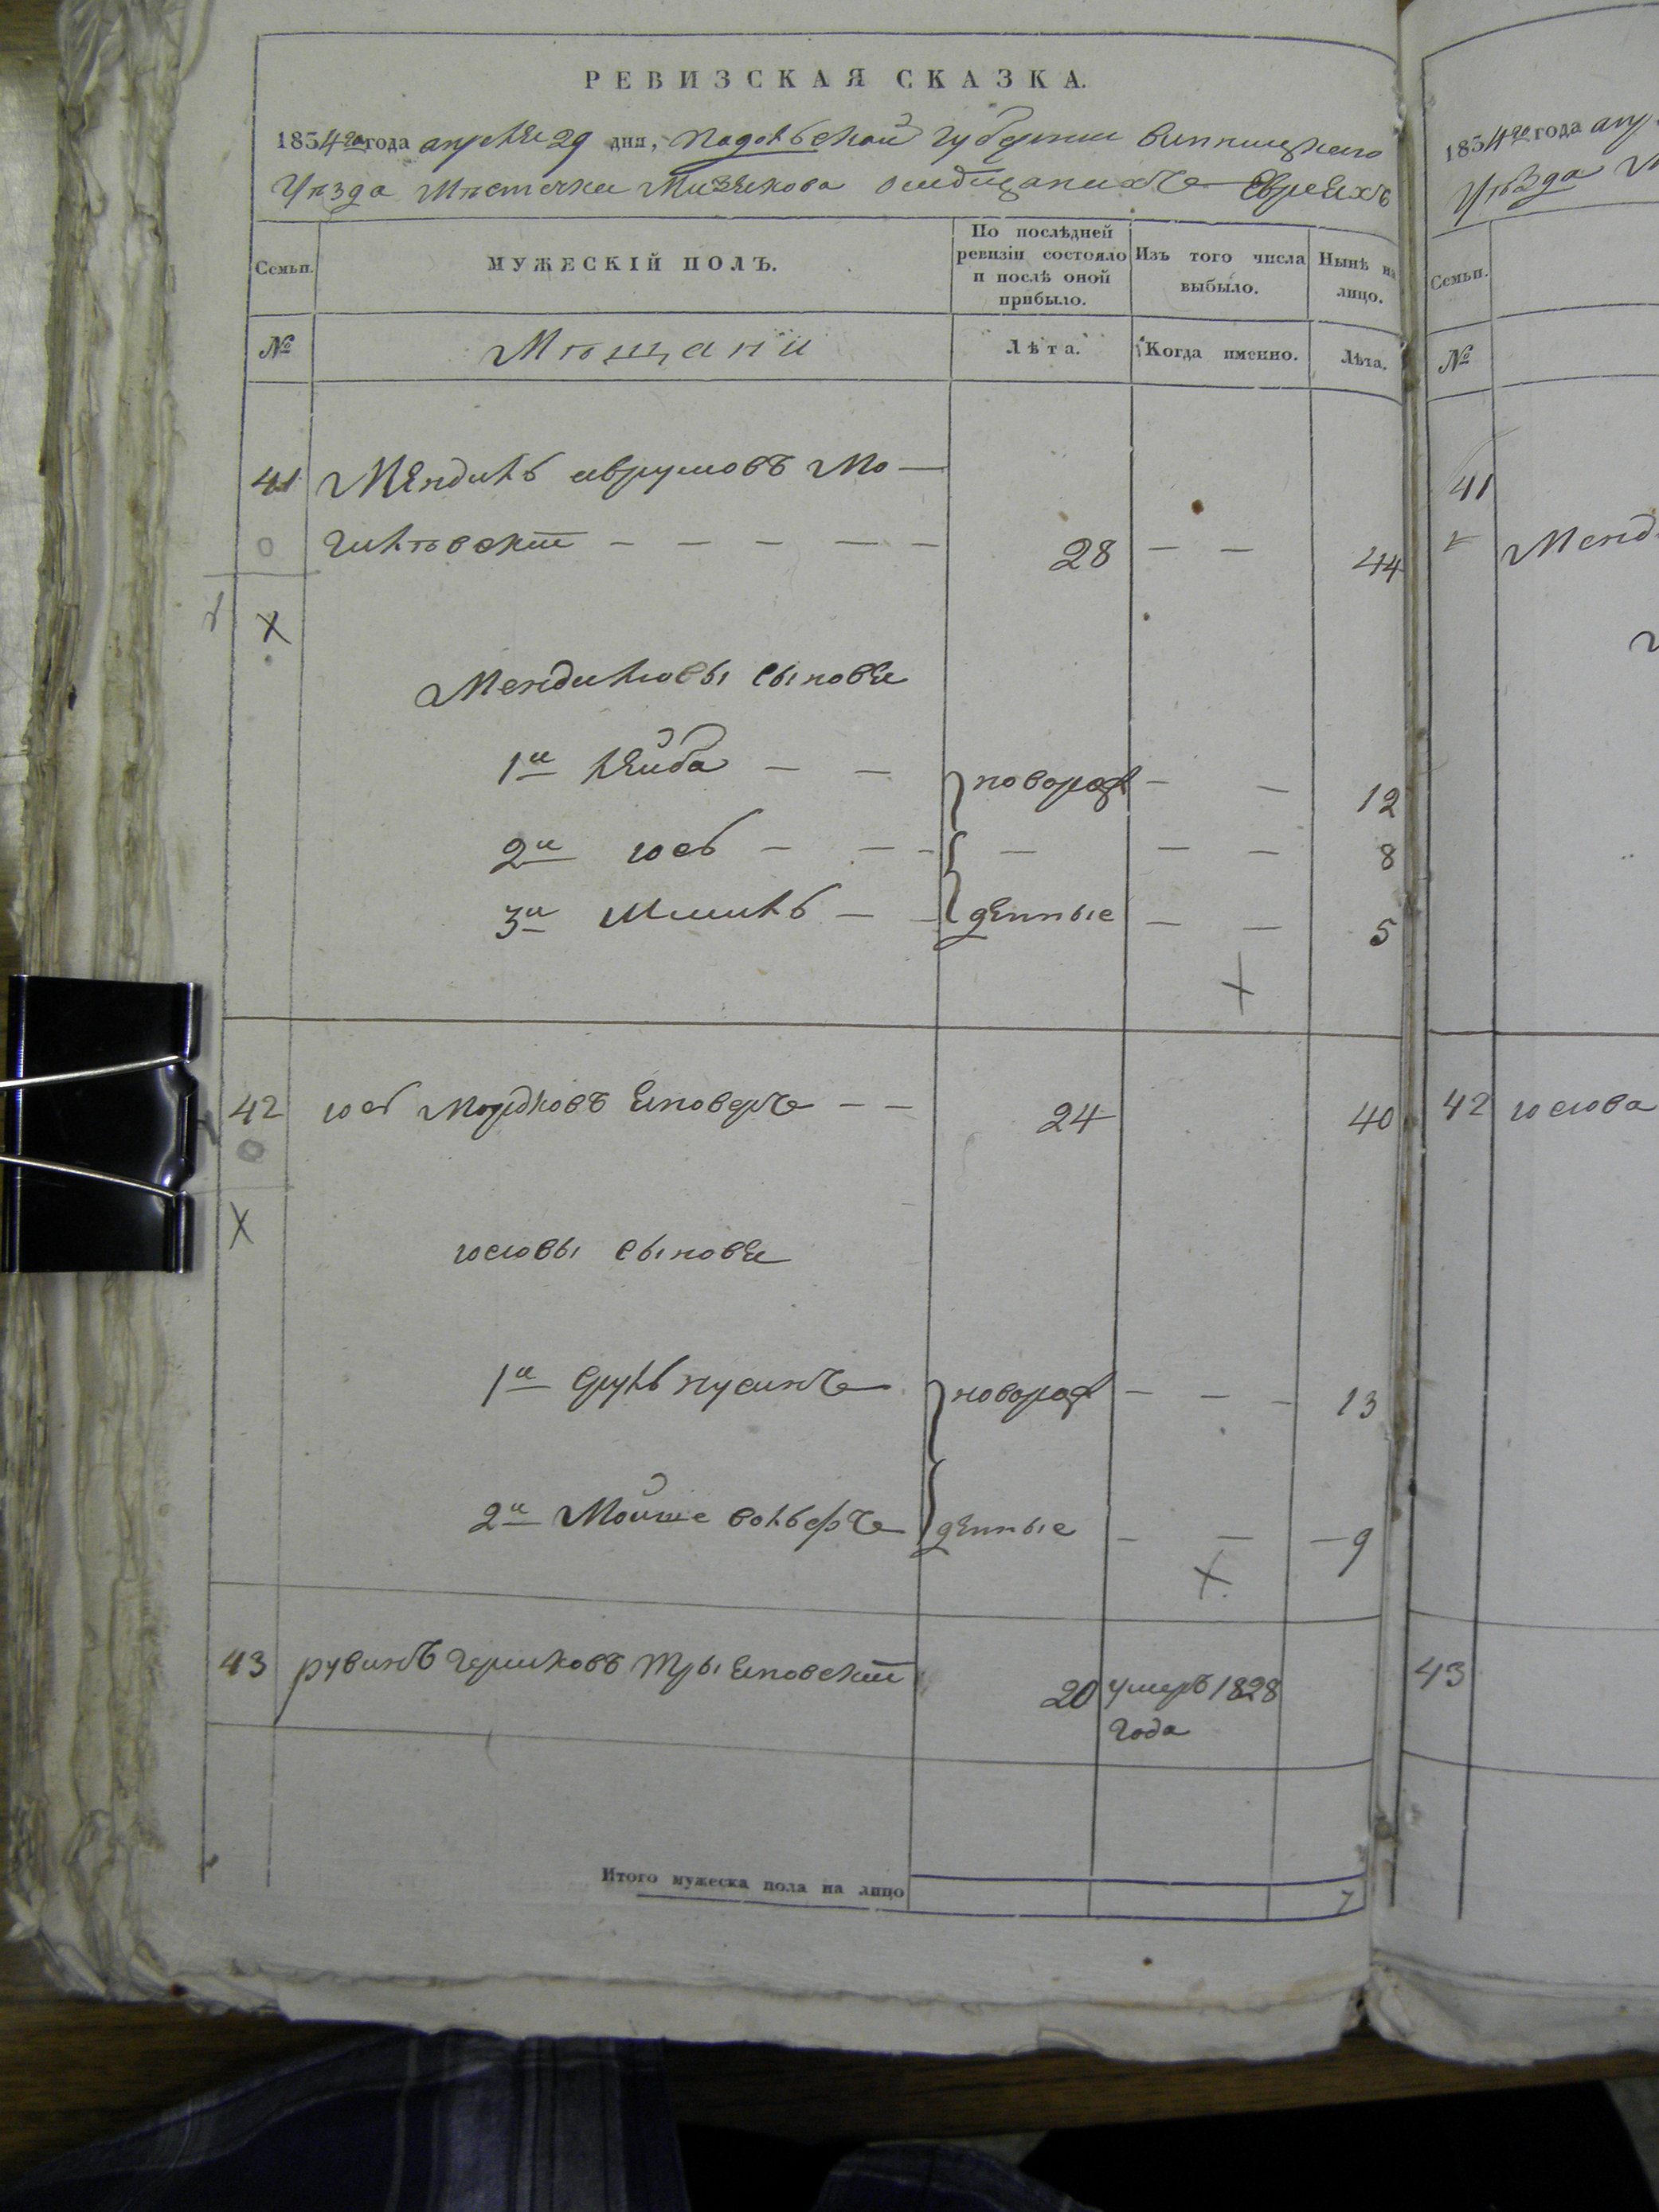 РЕВИЗСКАЯ СКАЗКА.
1854го года апреля 29 дня, Подольской Губернии Винницкаго
Уѣзда Мѣстечка Мизякова о мѣщанахъ Евреяхъ
Семьи.
МУЖЕСКІЙ ПОЛЪ.
По послѣдней ревизіи состояло и послѣ оной прибыло.
Изъ того числа выбыло.
Нынѣ на лицо.
№
Мѣщаnіи
Лѣта.
Когда именно.
Лѣта.
41 Мендиль аврумовъ Мо-
гилѣвскій 28 44
Мендилювы сыновя
1й лейба новорож 12
2й юсь 8
3й Шмиль денные 5
42 юсь Мордковъ 24 40
юсювы сыновя
1й сруль нусинъ новорож 13
2й Мойше вольфъ денные 9
43 рувинъ гершковъ 20 умеръ 1828
года
Итого мужеска пола на лицо 7
1854го года апр
Уѣзда М
Семьи.
№
41
Менд
42 юсюва
43